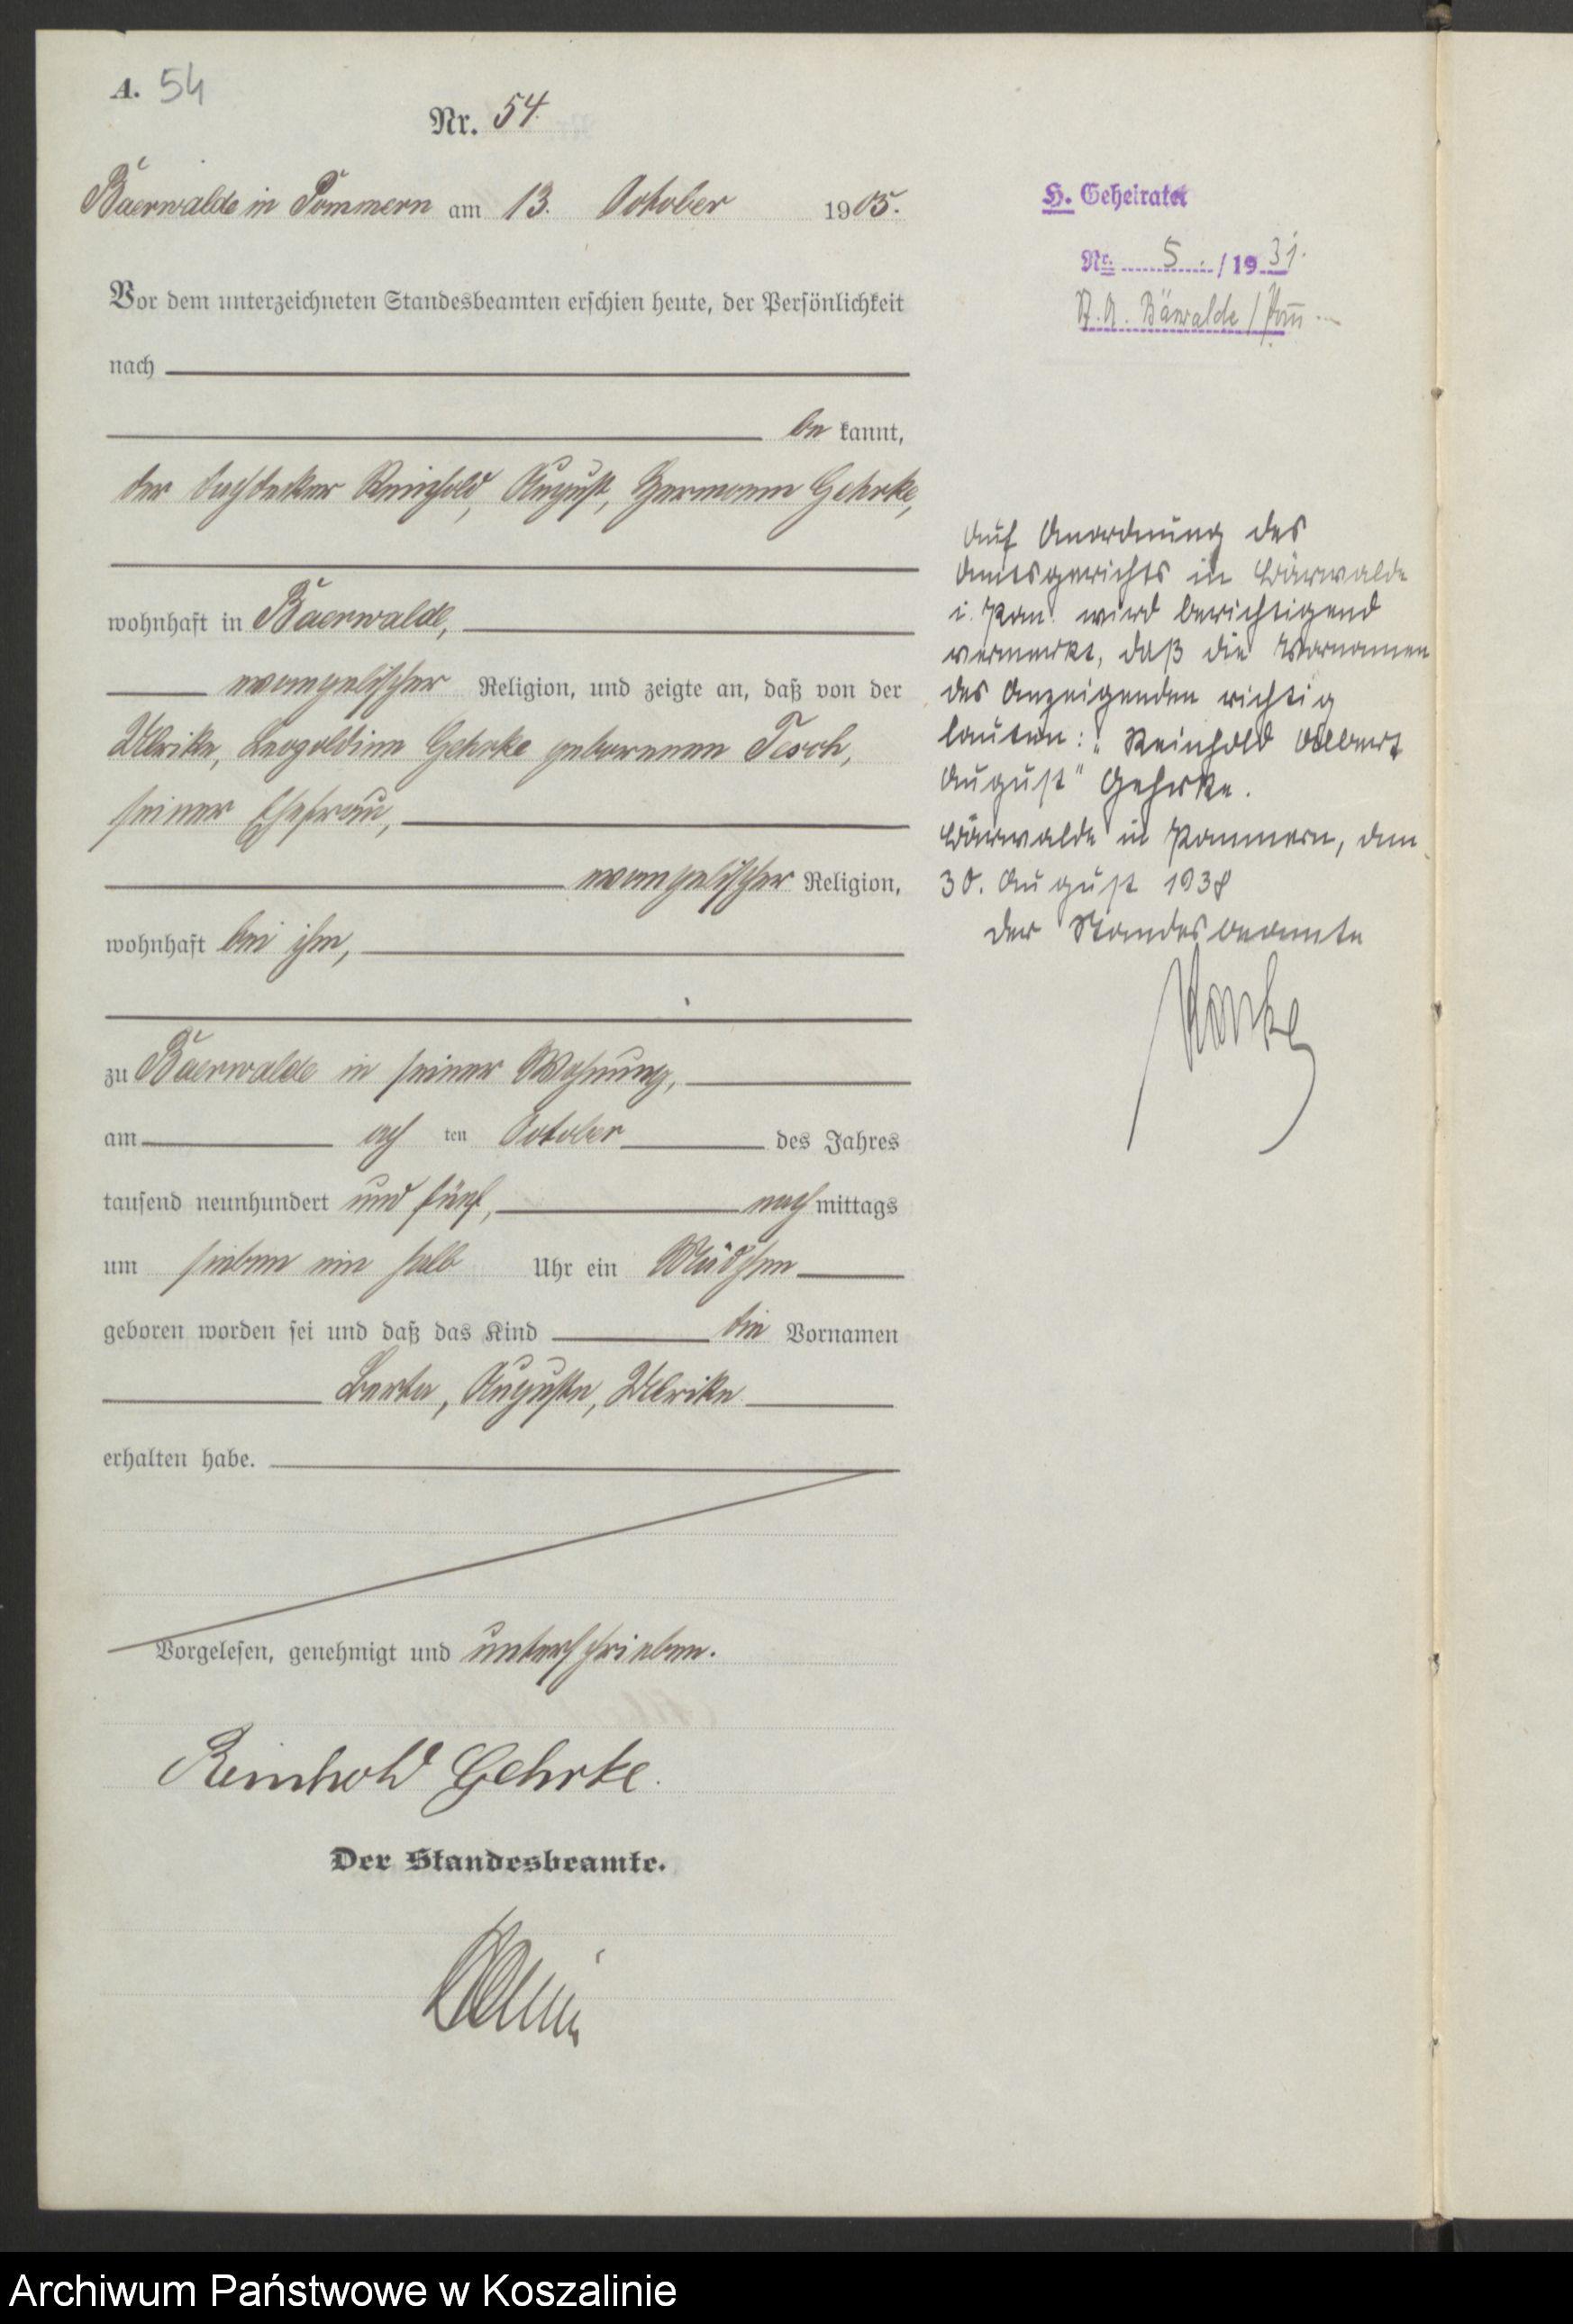 A. 54
Nr. 54.
Baerwalde in Pommern am 13. October 1905.
Vor dem unterzeichneten Standesbeamten erschien heute, der Persönlichkeit
nach
be kannt,
der Dachdecker Reinhold, August, Hermann Gehrke,
wohnhaft in Baerwalde,
evangelischer Religion, und zeigte an, daß von der
Ulrike, Leopoldine Gehrke geborenen Tesch,
seiner Ehefrau,
evangelischer Religion,
wohnhaft bei ihm,
zu Baerwalde in seiner Wohnung,
am ach ten October des Jahres
tausend neunhundert und fünf, nach mittags
um sieben ein halb Uhr ein Mädchen
geboren worden sei und daß das Kind die Vornamen
Berta, Auguste, Ulrike
erhalten habe.
Vorgelesen, genehmigt und unterschrieben.
Reinhold Gehrke.
Der Standesbeamte.
H. Geheiratet
Nr. 5. / 19 31.
St. A. Bärwalde / Pom
Auf Anordnung des
Amtsgerichts in Bärwalde
i. Pom. wird berichtigend
vermerkt, daß die Vornamen
des Anzeigenden richtig
lauten: „Reinhold Albert
August" Gehrke.
Bärwalde in Pommern, den
30. August 1938
Der Standesbeamte
Archiwum Państwowe w Koszalinie